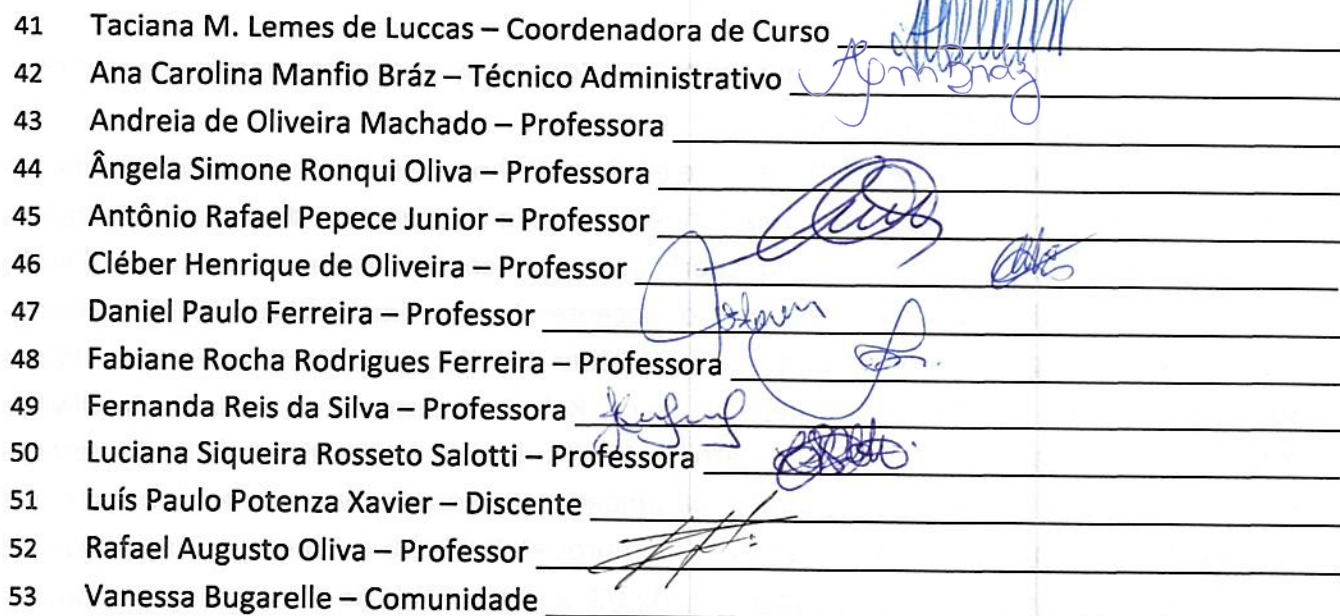 41 Taciana M. Lemes de Luccas – Coordenadora de Curso
42 Ana Carolina Manfio Bráz – Técnico Administrativo
43 Andreia de Oliveira Machado – Professora
44 Ângela Simone Ronqui Oliva – Professora
45 Antônio Rafael Pepece Junior – Professor
46 Cléber Henrique de Oliveira – Professor
47 Daniel Paulo Ferreira – Professor
48 Fabiane Rocha Rodrigues Ferreira – Professora
49 Fernanda Reis da Silva – Professora
50 Luciana Siqueira Rosseto Salotti – Professora
51 Luís Paulo Potenza Xavier – Discente
52 Rafael Augusto Oliva – Professor
53 Vanessa Bugarelle – Comunidade